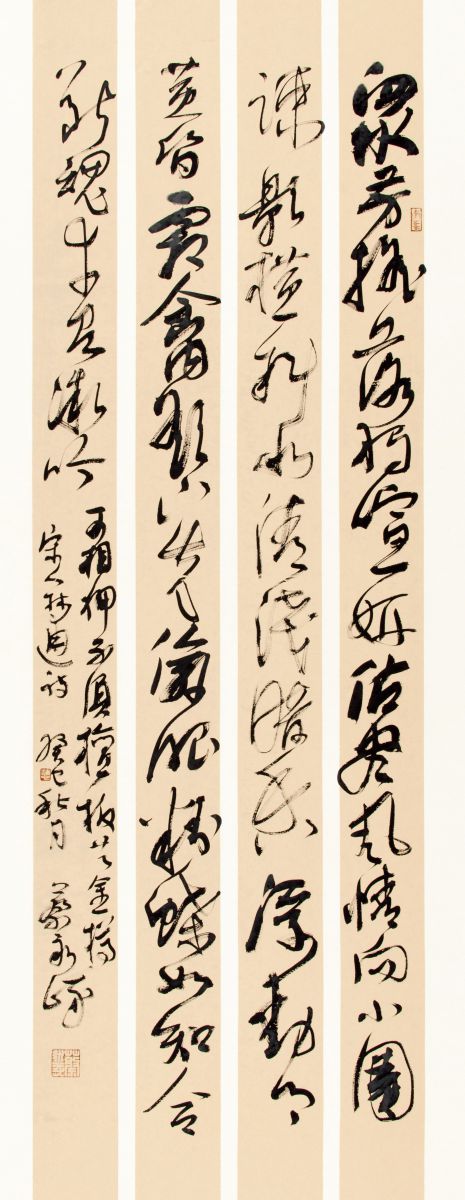 眾芳搖落獨暄妍佔盡風情向小園
疎影橫斜水清淺暗香浮動月
黃昏霜禽欲下先偷眼粉蝶如知合
斷魂幸有微吟
可相狎不須檀板共金樽
宋人林逋詩 癸巳秋月